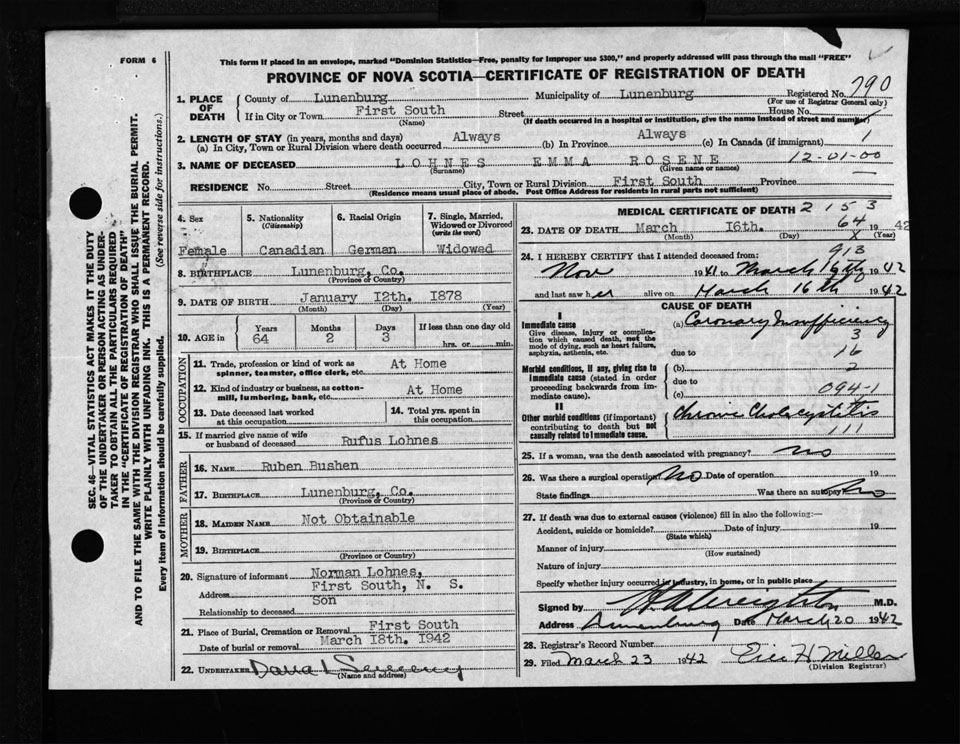 FORM 6
This form if placed in an envelope, marked "Dominion Statistics—Free, penalty for improper use $300," and properly addressed will pass through the mail "FREE"
PROVINCE OF NOVA SCOTIA—CERTIFICATE OF REGISTRATION OF DEATH
SEC. 46—VITAL STATISTICS ACT MAKES IT THE DUTY
OF THE UNDERTAKER OR PERSON ACTING AS UNDER-
TAKER TO OBTAIN ALL THE PARTICULARS REQUIRED
IN THE "CERTIFICATE OF REGISTRATION OF DEATH"
AND TO FILE THE SAME WITH THE DIVISION REGISTRAR WHO SHALL ISSUE THE BURIAL PERMIT.
WRITE PLAINLY WITH UNFADING INK. THIS IS A PERMANENT RECORD.
Every item of information should be carefully supplied. (See reverse side for instructions.)
Registered No. 790
(For use of Registrar General only)
1. PLACE OF DEATH County of Lunenburg Municipality of Lunenburg
If in City or Town First South Street House No.
(Name) (If death occurred in a hospital or institution, give the name instead of street and number)
2. LENGTH OF STAY (in years, months and days)
(a) In City, Town or Rural Division where death occurred Always (b) In Province Always (c) In Canada (if immigrant) 1
3. NAME OF DECEASED LOHNES EMMA ROSENE 12-01-00
(Surname) (Given name or names)
RESIDENCE No. Street City, Town or Rural Division First South Province
(Residence means usual place of abode. Post Office Address for residents in rural parts not sufficient)
4. Sex Female
5. Nationality (Citizenship) Canadian
6. Racial Origin German
7. Single, Married, Widowed or Divorced (write the word) Widowed
8. BIRTHPLACE Lunenburg, Co.
(Province or Country)
9. DATE OF BIRTH January 12th. 1878
(Month) (Day) (Year)
10. AGE in Years 64 Months 2 Days 3 If less than one day old hrs. or min.
OCCUPATION
11. Trade, profession or kind of work as spinner, teamster, office clerk, etc. At Home
12. Kind of industry or business, as cotton-mill, lumbering, bank, etc. At Home
13. Date deceased last worked at this occupation
14. Total yrs. spent in this occupation
15. If married give name of wife or husband of deceased Rufus Lohnes
FATHER
16. NAME Ruben Bushen
17. BIRTHPLACE Lunenburg, Co.
(Province or Country)
MOTHER
18. MAIDEN NAME Not Obtainable
19. BIRTHPLACE
(Province or Country)
20. Signature of informant Norman Lohnes,
Address First South, N. S.
Relationship to deceased Son
21. Place of Burial, Cremation or Removal First South
Date of burial or removal March 18th. 1942
22. UNDERTAKER
(Name and address)
MEDICAL CERTIFICATE OF DEATH 2153
64
23. DATE OF DEATH March 16th. 1942
(Month) (Day) (Year)
913
24. I HEREBY CERTIFY that I attended deceased from:
Nov 1941 to March 1942
and last saw her alive on March 16th 1942
CAUSE OF DEATH
I
Immediate cause (a) Coronary Insufficiency
Give disease, injury or complication which caused death, not the mode of dying, such as heart failure, asphyxia, asthenia, etc.
3
due to 16
Morbid conditions, if any, giving rise to immediate cause (stated in order proceeding backwards from immediate cause).
(b) 2
due to
(c) 094-1
II
Other morbid conditions (if important) contributing to death but not causally related to immediate cause.
Chronic Cholecystitis
111
25. If a woman, was the death associated with pregnancy? no
26. Was there a surgical operation? No Date of operation 19
State findings Was there an autopsy? no
27. If death was due to external causes (violence) fill in also the following:—
Accident, suicide or homicide? Date of injury 19
(State which)
Manner of injury
(How sustained)
Nature of injury
Specify whether injury occurred in industry, in home, or in public place
Signed by M.D.
Address Lunenburg Date March 20 1942
28. Registrar's Record Number
29. Filed March 23 1942 Eric H Miller
(Division Registrar)